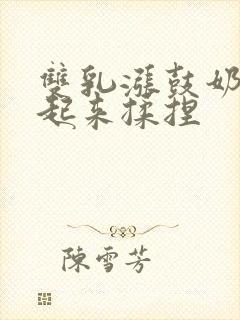 雙乳漲鼓奶
起来揉捏
陳雪芳